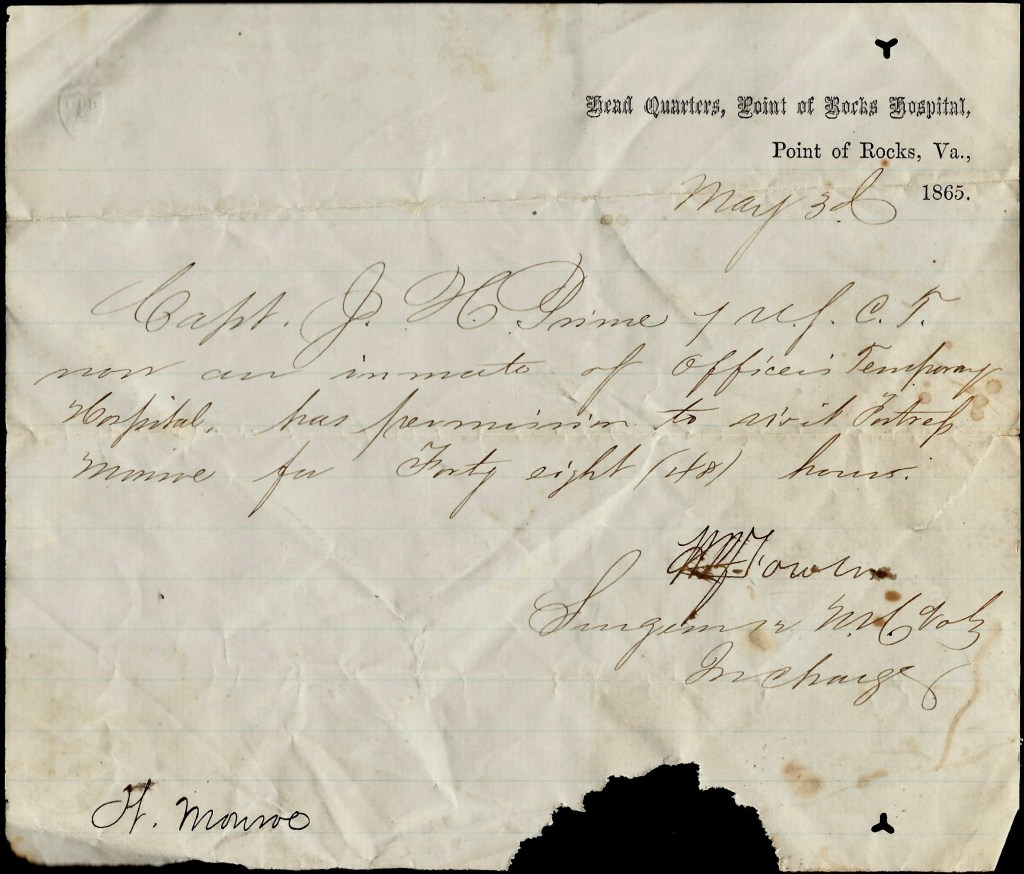 Head Quarters, Point of Rocks Hospital,
Point of Rocks, Va.,
May 3d 1865.
Capt. J. H. Prime 7 U.S. C. T.
now an inmate of Officers Temporary
Hospital, has permission to visit Fortress
Monroe for Forty eight (48) hours.
Fowler
Surgeon N.C. Vols
In charge
Ft. Monroe